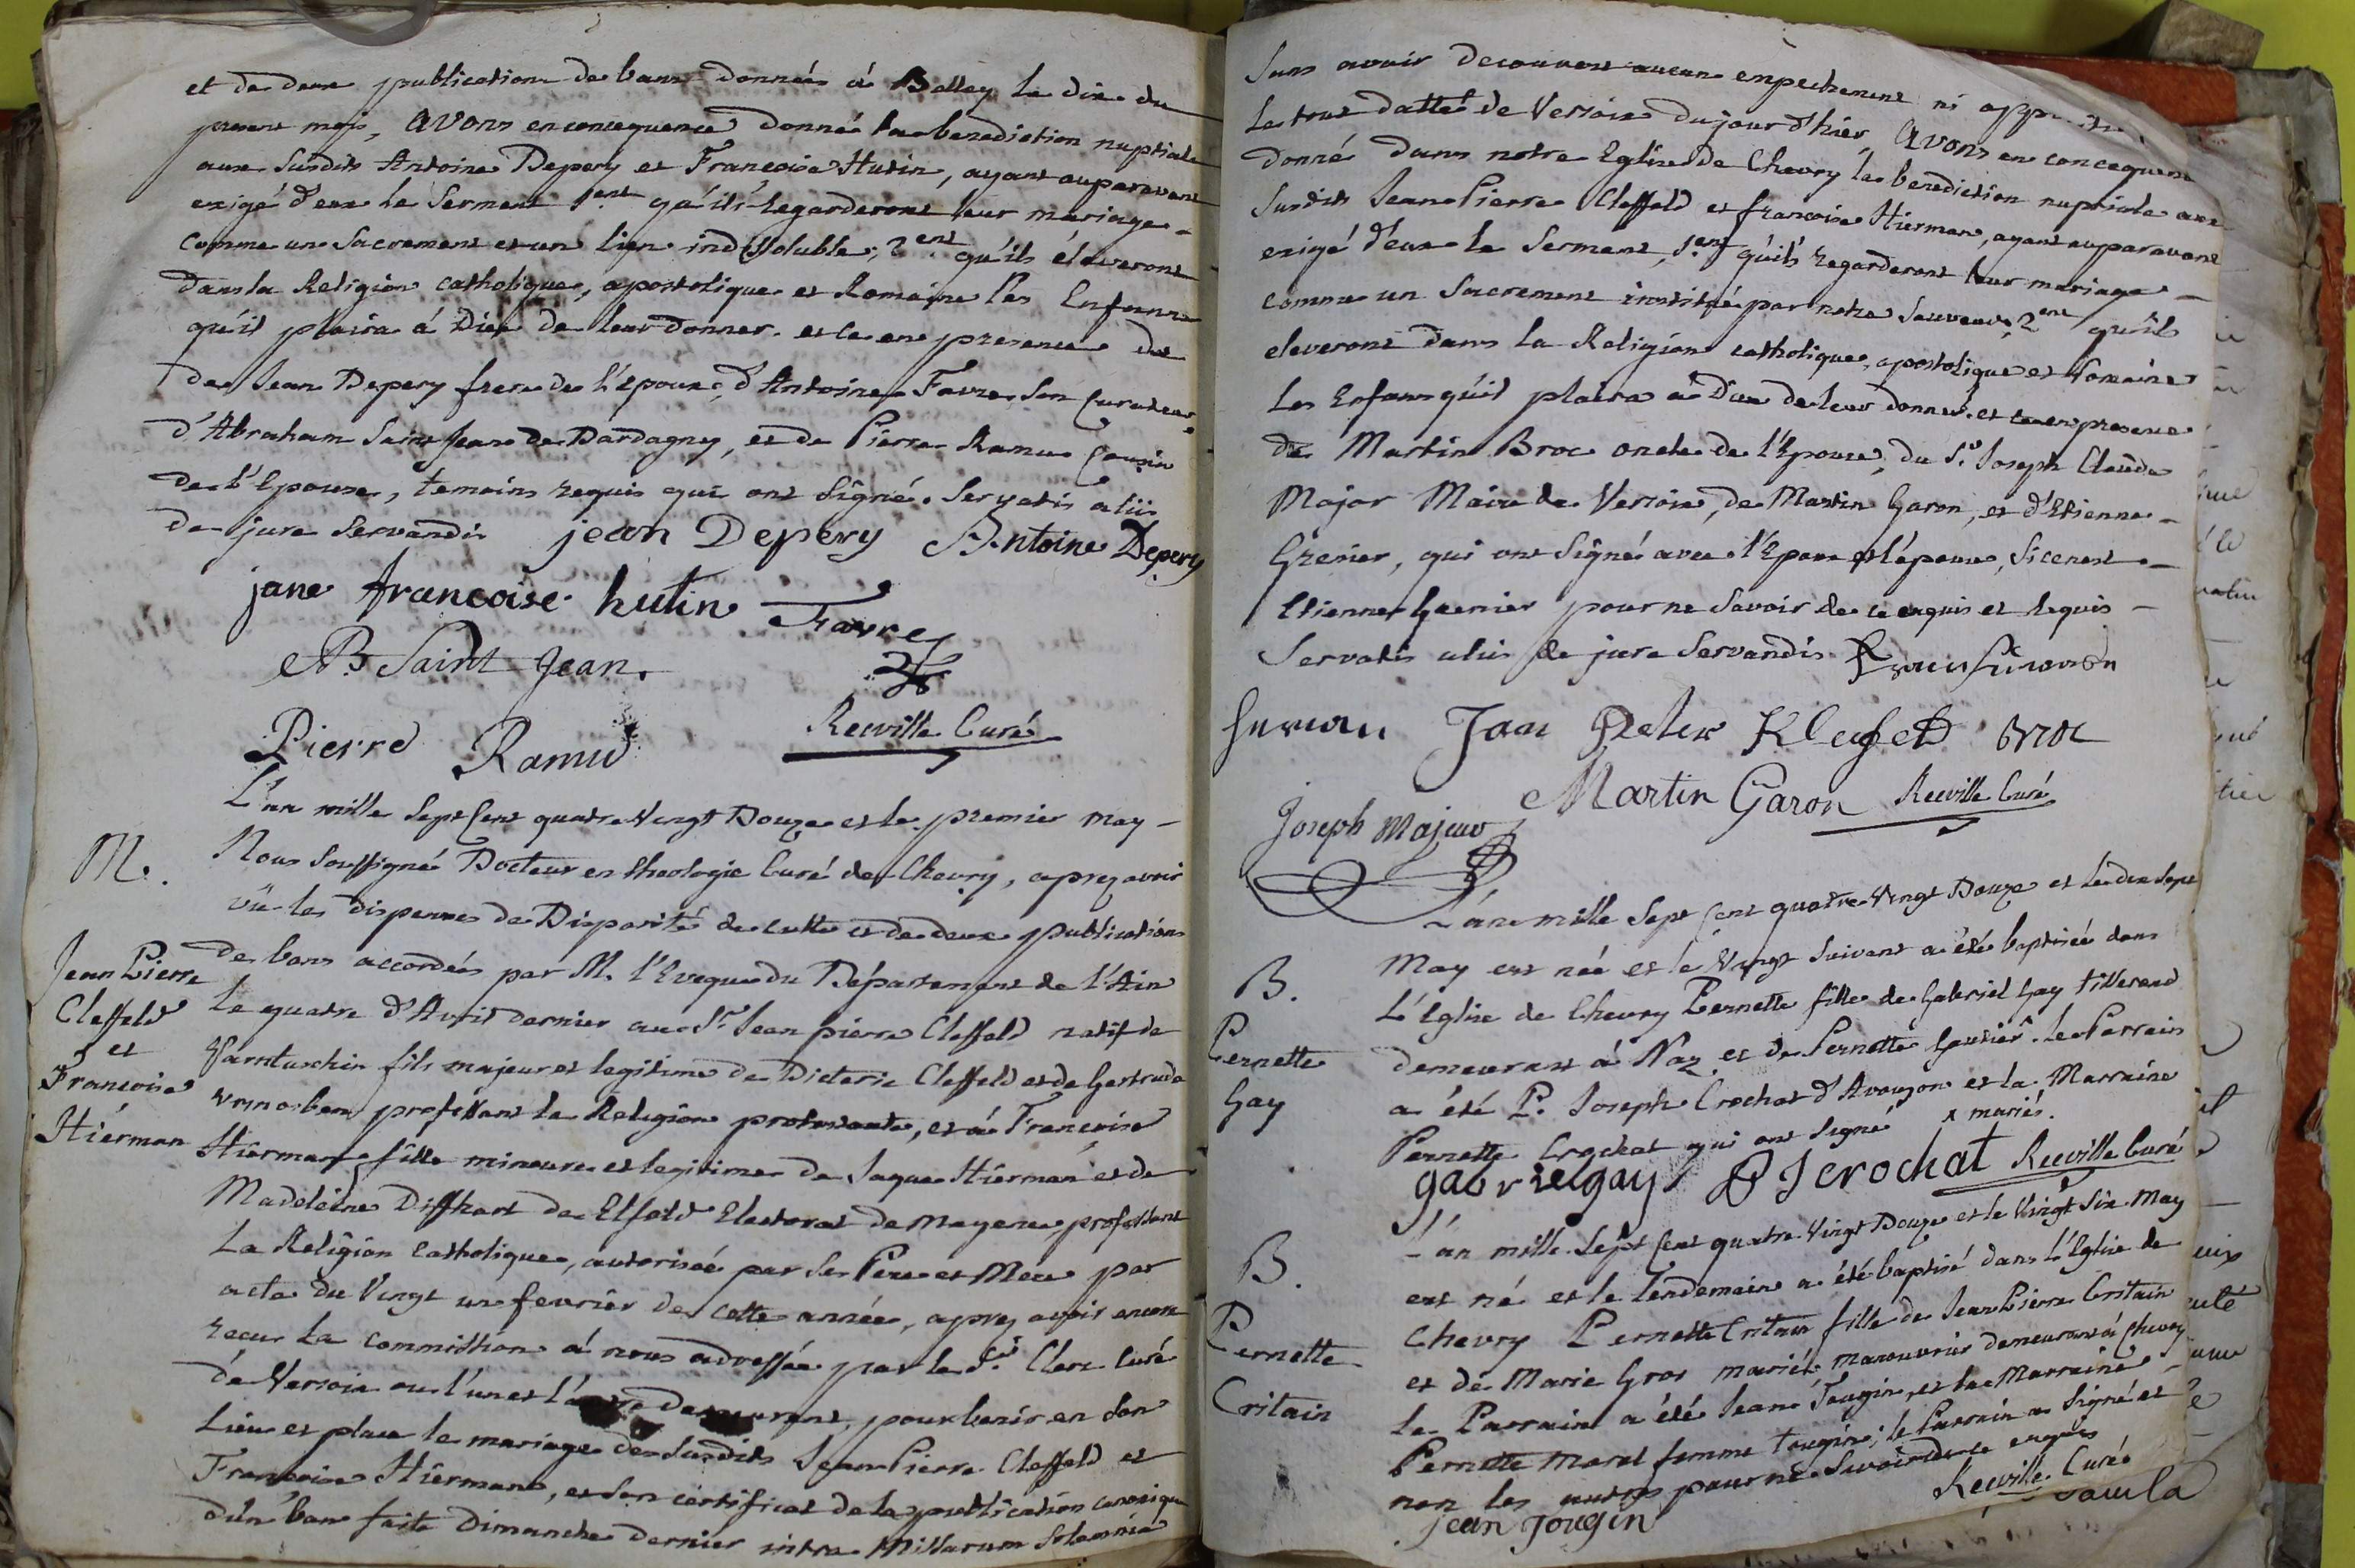 et de deux publications de bans données á Belley le dix du
present mois, avons en consequence donné la benediction nuptiale
aux susdits Antoine Depery et Francoise Hutin, ayant auparavant
exigé d'eux le serment 1.ent qu'ils regarderont leur mariage
comme un sacrement et un lien indissoluble; 2.ent qu'ils éleveront
dans la Religion catholique, apostolique et Romaine les Enfans
qu'il plaira á Dieu de leur donner. et ce en presence de
de Jean Depery frere de l'epoux, d'Antoine Favre son Curateur,
d'Abraham Saint Jean de Dardagny, et de Pierre Ramu Cousin
de l'Epouse, temoins requis qui ont signé. Servatis aliis
de jure servandis jean Depery Antoine Depery
jane francoise hutin Favre
AB Saint Jean.
Pierre Ramu Reeville Curé
L'an mille sept Cent quatre Vingt Douze et le premier may
M. Nous soussigné Docteur en theologie Curé de Chevry, aprez avoir
vû les dispenses de Disparité de culte et de deux publications
Jean Pierre Cleffeld et Francoise Hierman
de bans accordées par M. l'Eveque du Département de l'Ain
le quatre d'Avril dernier au Sr. Jean pierre Cleffeld natif de
fils majeur et legitime de Dieteric Cleffeld et de Gertrude
professant la Religion protestante, et á Francoise
Hierman fille mineure et legitime de Jaque Hierman et de
Madeleine Diffhart de Elfeld Electorat de Mayence professant
La Religion Catholique, autorisée par ses Pere et Mere par
acte du Vingt un fevrier de cette année, aprez avoir encore
recu la commission á nous adressée par le Sr. Clerc Curé
de Versoix ou l'un et l'autre demeurent, pour benir en son
lieu et place le mariage des susdits Jean Pierre Cleffeld et
Francoise Hierman, et son certificat de la publication canonique
d'un ban faite Dimanche dernier intra Missarum solemnia
sans avoir decouvert aucun empechement ni
le tout datté de Versoix du jour d'hier, avons en concequence
donné dans notre Eglise de Chevry la benediction nuptiale aux
susdits Jean Pierre Cleffeld et francoise Hierman, ayant auparavant
exigé d'eux le serment, 1.ent qu'ils regarderont leur mariage
comme un Sacrement institué par notre Sauveur; 2.ent qu'ils
eleveront dans la Religion catholique, apostolique et Romaine
les Enfans qu'il plaira a Dieu de leur donner. et ce en presence
de Martin Broc oncle de l'Epouse, du Sr. Joseph Claude
Major Maire de Versoix, de Martin Garon, et d'Etienne
Grenier, qui ont signé avec l'Epoux et l'epouse, si ce n'est
Etienne Grenier pour ne savoir de ce enquis et requis
Servatis aliis de jure servandis
Jean Peter Klefeld Broc
Joseph Majeur Martin Garon Reeville Curé
L'an mille sept Cent quatre Vingt Douze et le dix sept
B. May est née et le Vingt suivant a été baptisée dans
Pernette Gay
L'Eglise de Chevry Pernette fille de Gabriel Gay tisserand
demeurant á Naz et de Pernette Gautier x. le Parrain
a été P. Joseph Crochat d'Avouzon et la Marraine
Pernette Crochat qui ont signé x mariés.
gabrielgay P J crochat Reeville Curé
L'an mille sept Cent quatre Vingt Douze et le Vingt six May
B. est né et le lendemain a été baptisé dans l'Eglise de
Pernette Critain
Chevry Pernette Critain fille de Jean Pierre Critain
et de Marie Gros mariés manouvrier demeurant á Chevry
le Parrain a été Jean Tougin, et la Marraine
Pernette Morel femme Tougin; le Parrain a signé et
non les autres pour ne savoir de ce enquis
jean Jougin Reeville Curé